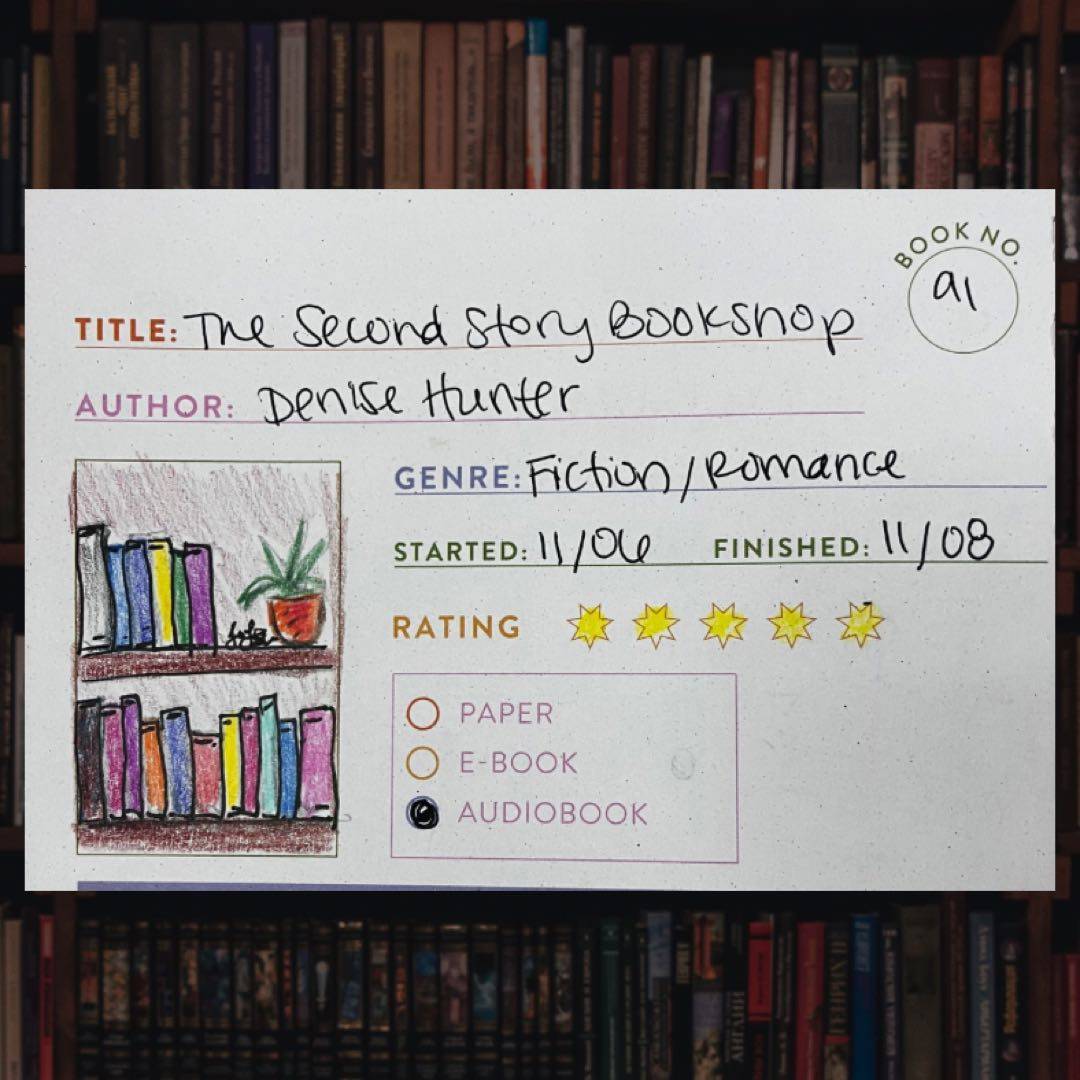 BOOK NO.
91
TITLE: The Second Story Bookshop
AUTHOR: Denise Hunter
GENRE: Fiction/Romance
STARTED: 11/06 FINISHED: 11/08
RATING
PAPER
E-BOOK
AUDIOBOOK